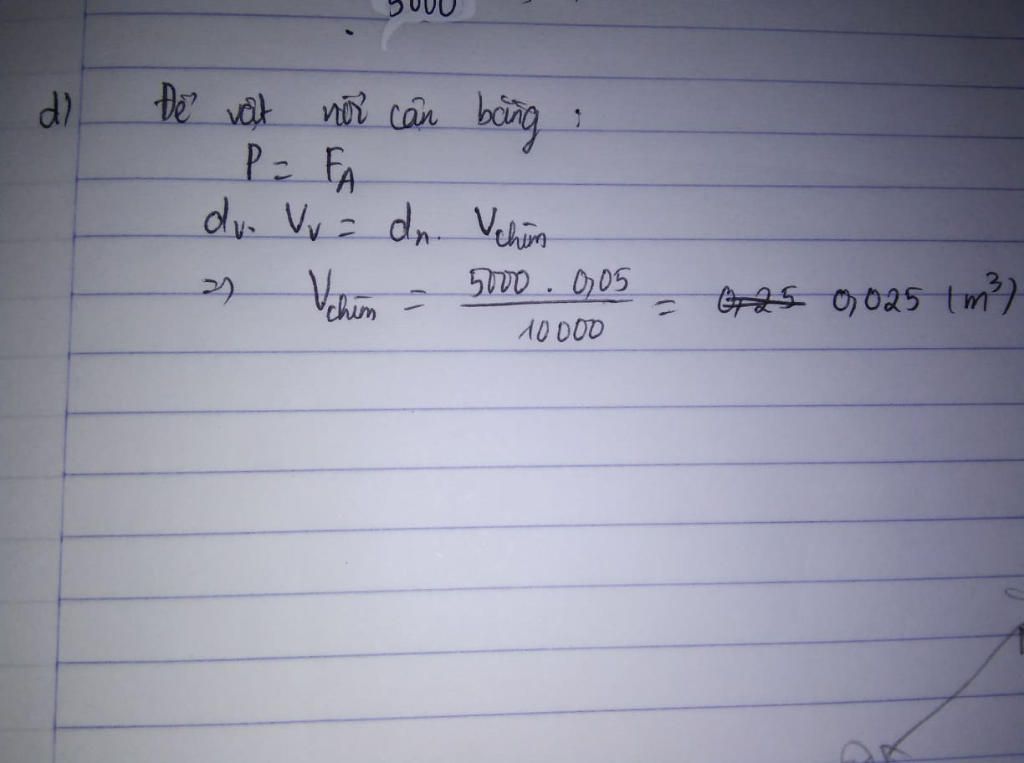 5000
d) Để vật nổi cân bằng :
P = F_A
d_v. V_v = d_n. V_chìm
=> V_chìm = 5000 . 0,05 / 10000 = ~~0,25~~ 0,025 (m³)